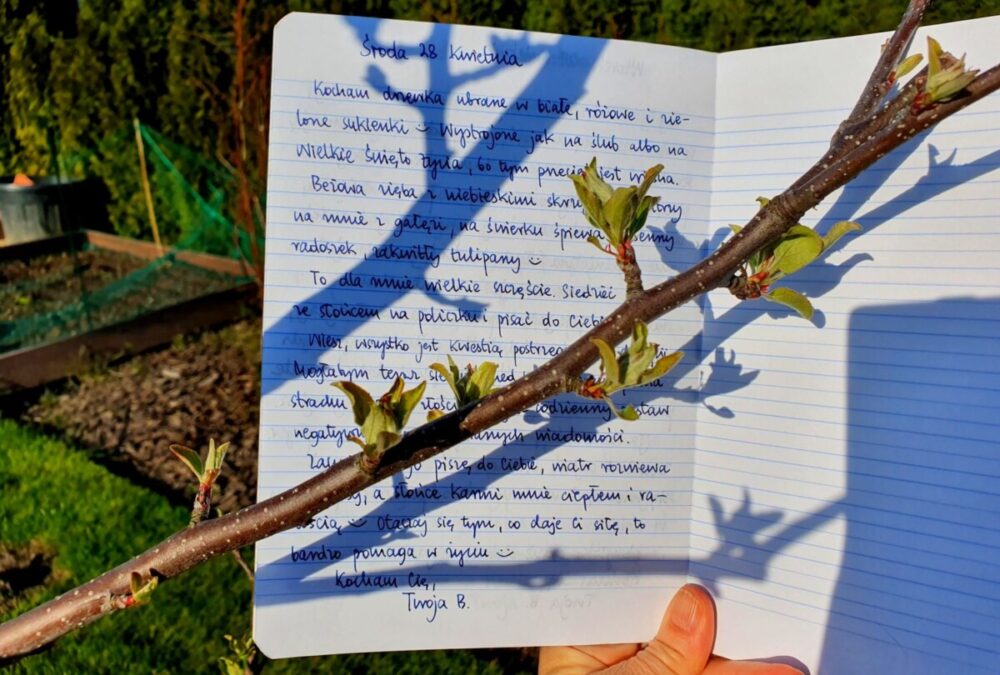 Środa 28 kwietnia
Kocham drzewka ubrane w białe, różowe i zie-
lone sukienki ☺ Wystrojone jak na ślub albo na
Wielkie święto życia, bo tym przecież jest wiosna.
Beżowa zięba z niebieskimi
na mnie z gałęzi, na świerku śpiewa
radośnie, zakwitły tulipany ☺
To dla mnie wielkie szczęście. Siedzieć
ze słońcem na policzku i pisać do Ciebie
Wiesz, wszystko jest kwestią
Mogłabym teraz
strachu codzienny
negatywnych wiadomości.
piszę do Ciebie, wiatr rozwiewa
a słońce karmi mnie ciepłem i ra-
dością ☺ Otaczaj się tym, co daje Ci siłę, to
bardzo pomaga w życiu ☺
Kocham Cię,
Twoja B.